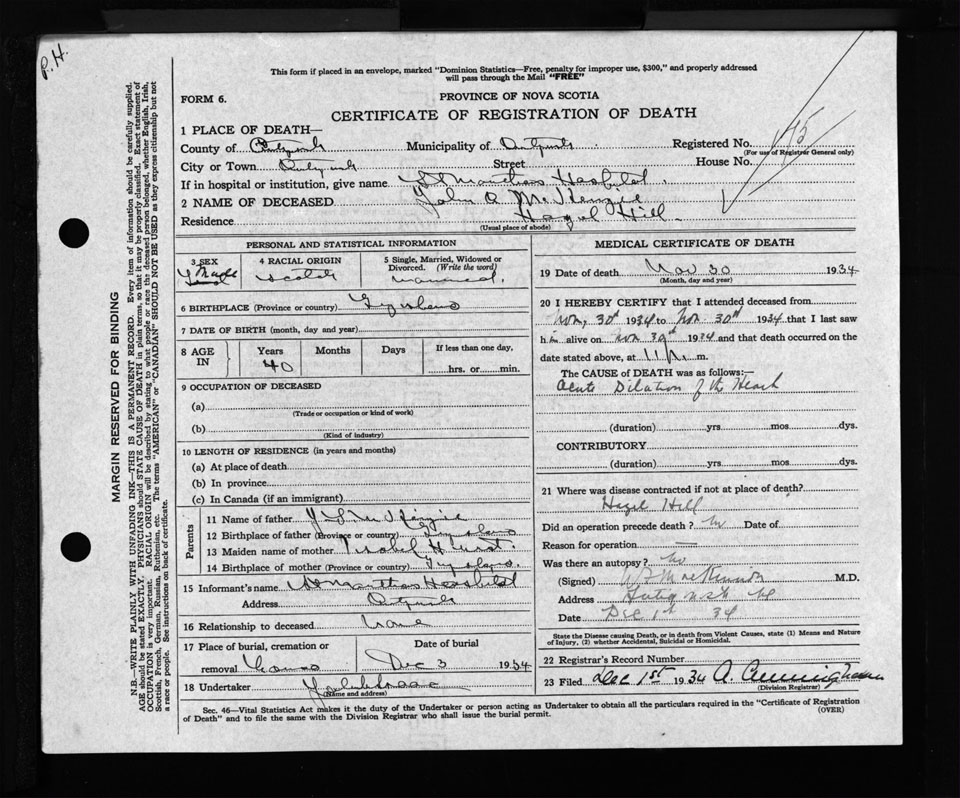 P.H.
This form if placed in an envelope, marked "Dominion Statistics—Free, penalty for improper use, $300," and properly addressed
will pass through the Mail "FREE"
FORM 6.
PROVINCE OF NOVA SCOTIA
CERTIFICATE OF REGISTRATION OF DEATH
1 PLACE OF DEATH—
County of Municipality of Registered No. 175
(For use of Registrar General only)
City or Town Street House No.
If in hospital or institution, give name St Marthas Hospital.
2 NAME OF DECEASED John A.
Residence Hazel Hill.
(Usual place of abode)
PERSONAL AND STATISTICAL INFORMATION
3 SEX Male
4 RACIAL ORIGIN Scotch
5 Single, Married, Widowed or Divorced. (Write the word)
6 BIRTHPLACE (Province or country)
7 DATE OF BIRTH (month, day and year)
8 AGE IN Years Months Days If less than one day,
40 hrs. or min.
9 OCCUPATION OF DECEASED
(a)
(Trade or occupation or kind of work)
(b)
(Kind of industry)
10 LENGTH OF RESIDENCE (in years and months)
(a) At place of death
(b) In province
(c) In Canada (if an immigrant)
Parents
11 Name of father
12 Birthplace of father (Province or country)
13 Maiden name of mother Isabel
14 Birthplace of mother (Province or country)
15 Informant's name St Marthas Hospital
Address
16 Relationship to deceased None
17 Place of burial, cremation or Date of burial
removal Dec 3 1934
18 Undertaker
(Name and address)
MEDICAL CERTIFICATE OF DEATH
19 Date of death Nov 30 1934
(Month, day and year)
20 I HEREBY CERTIFY that I attended deceased from
Nov, 30th 1934 to Nov. 30th 1934 that I last saw
him alive on Nov 30th 1934 and that death occurred on the
date stated above, at 11 m.
The CAUSE OF DEATH was as follows:—
Acute Dilation of the Heart
(duration) yrs mos dys.
CONTRIBUTORY
(duration) yrs mos dys.
21 Where was disease contracted if not at place of death?
Hazel Hill
Did an operation precede death? No Date of
Reason for operation —
Was there an autopsy? No
(Signed) MacKinnon M.D.
Address Antigonish NS
Date Dec 1st 34
State the Disease causing Death, or in death from Violent Causes, state (1) Means and Nature
of Injury, (2) whether Accidental, Suicidal or Homicidal.
22 Registrar's Record Number
23 Filed Dec 1st 1934 A. Cunningham
(Division Registrar)
Sec. 46—Vital Statistics Act makes it the duty of the Undertaker or person acting as Undertaker to obtain all the particulars required in the "Certificate of Registration
of Death" and to file the same with the Division Registrar who shall issue the burial permit. (OVER)
MARGIN RESERVED FOR BINDING
N.B.—WRITE PLAINLY WITH UNFADING INK—THIS IS A PERMANENT RECORD. Every item of information should be carefully supplied.
AGE should be stated EXACTLY. PHYSICIANS should STATE CAUSE OF DEATH in plain terms, so that it may be properly classified. Exact statement of
OCCUPATION is very important. RACIAL ORIGIN will be described by stating to what people or race the deceased person belonged, whether English, Irish,
Scottish, French, German, Russian, Ruthenian, etc. The terms "AMERICAN" or "CANADIAN" SHOULD NOT BE USED as they express citizenship but not
a race or people. See instructions on back of certificate.